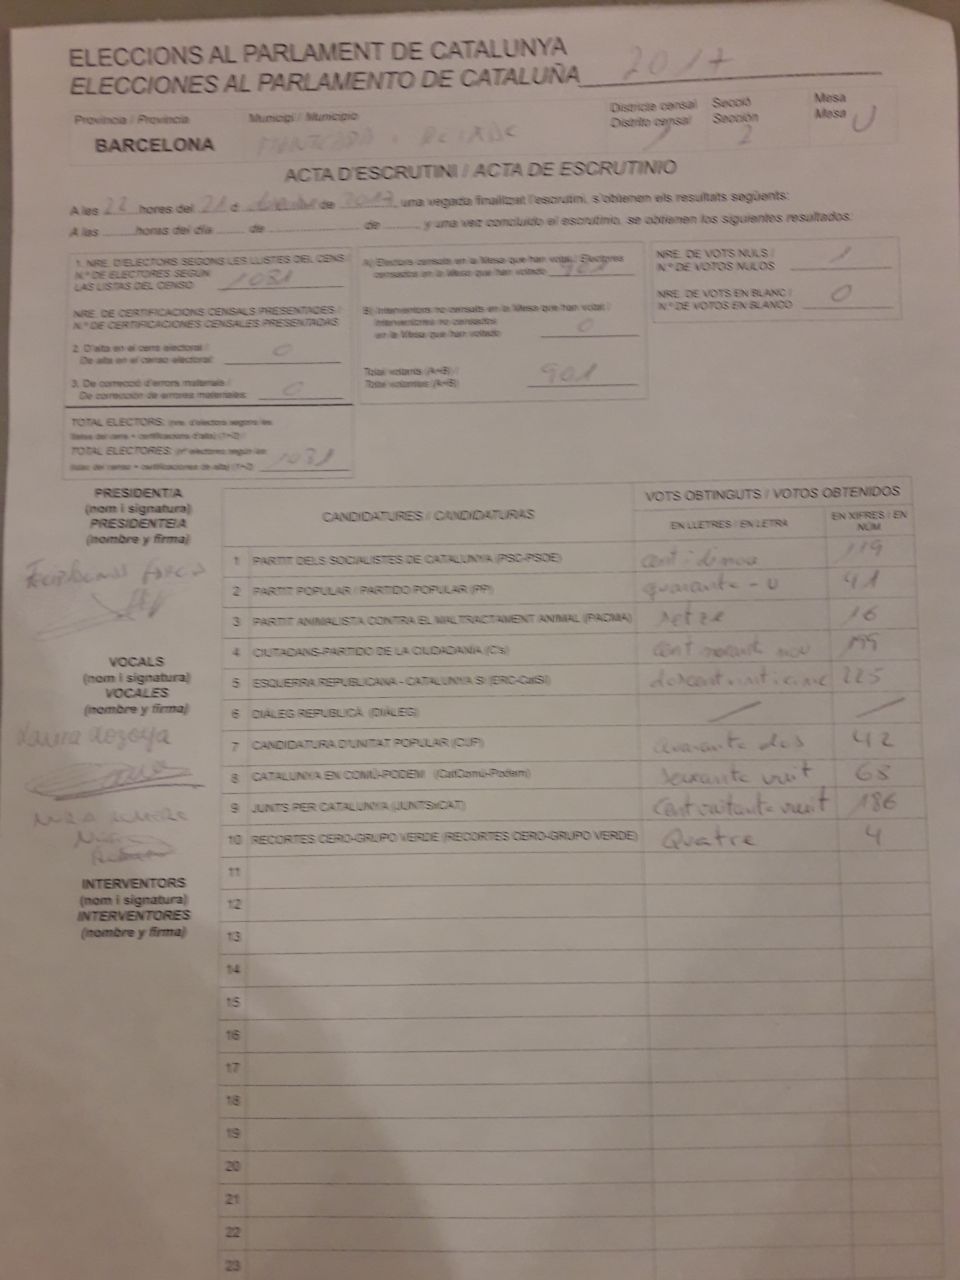 ELECCIONS AL PARLAMENT DE CATALUNYA
ELECCIONES AL PARLAMENTO DE CATALUÑA 2017
Província / Provincia Municipi / Municipio Districte censal Secció Mesa
Distrito censal Sección Mesa
BARCELONA MONTCADA I REIXAC 2 U
ACTA D'ESCRUTINI / ACTA DE ESCRUTINIO
A les 22 hores del 21 d desembre de 2017, una vegada finalitzat l'escrutini, s'obtenen els resultats següents:
A las ........ horas del día ........ de ........ de ........, y una vez concluido el escrutinio, se obtienen los siguientes resultados:
1. NRE. D'ELECTORS SEGONS LES LLISTES DEL CENS /
N.º DE ELECTORES SEGÚN
LAS LISTAS DEL CENSO 1031
NRE. DE CERTIFICACIONS CENSALS PRESENTADES /
N.º DE CERTIFICACIONES CENSALES PRESENTADAS
2. D'alta en el cens electoral /
De alta en el censo electoral: 0
3. De correcció d'errors materials /
De corrección de errores materiales: 0
TOTAL ELECTORS: (nre. d'electors segons les
llistes del cens + certificacions d'alta) (1+2) /
TOTAL ELECTORES: (nº electores según las
listas del censo + certificaciones de alta) (1+2) 1031
A) Electors censats en la Mesa que han votat / Electores
censados en la Mesa que han votado 901
B) Interventors no censats en la Mesa que han votat /
Interventores no censados
en la Mesa que han votado 0
Total votants (A+B) /
Total votantes (A+B) 901
NRE. DE VOTS NULS /
N.º DE VOTOS NULOS 1
NRE. DE VOTS EN BLANC /
N.º DE VOTOS EN BLANCO 0
PRESIDENT/A
(nom i signatura)
PRESIDENTE/A
(nombre y firma)
VOCALS
(nom i signatura)
VOCALES
(nombre y firma)
Laura Lozoya
INTERVENTORS
(nom i signatura)
INTERVENTORES
(nombre y firma)
CANDIDATURES / CANDIDATURAS VOTS OBTINGUTS / VOTOS OBTENIDOS
EN LLETRES / EN LETRA EN XIFRES / EN NÚM
1 PARTIT DELS SOCIALISTES DE CATALUNYA (PSC-PSOE) cent dinou 119
2 PARTIT POPULAR / PARTIDO POPULAR (PP) quaranta-u 41
3 PARTIT ANIMALISTA CONTRA EL MALTRACTAMENT ANIMAL (PACMA) setze 16
4 CIUTADANS-PARTIDO DE LA CIUDADANÍA (C's) cent noranta nou 199
5 ESQUERRA REPUBLICANA - CATALUNYA SÍ (ERC-CatSí) doscent vinticinc 225
6 DIÀLEG REPUBLICÀ (DIÀLEG) / /
7 CANDIDATURA D'UNITAT POPULAR (CUP) quaranta dos 42
8 CATALUNYA EN COMÚ-PODEM (CatComú-Podem) seixanta vuit 68
9 JUNTS PER CATALUNYA (JUNTSxCAT) cent vuitanta vuit 186
10 RECORTES CERO-GRUPO VERDE (RECORTES CERO-GRUPO VERDE) Quatre 4
11
12
13
14
15
16
17
18
19
20
21
22
23